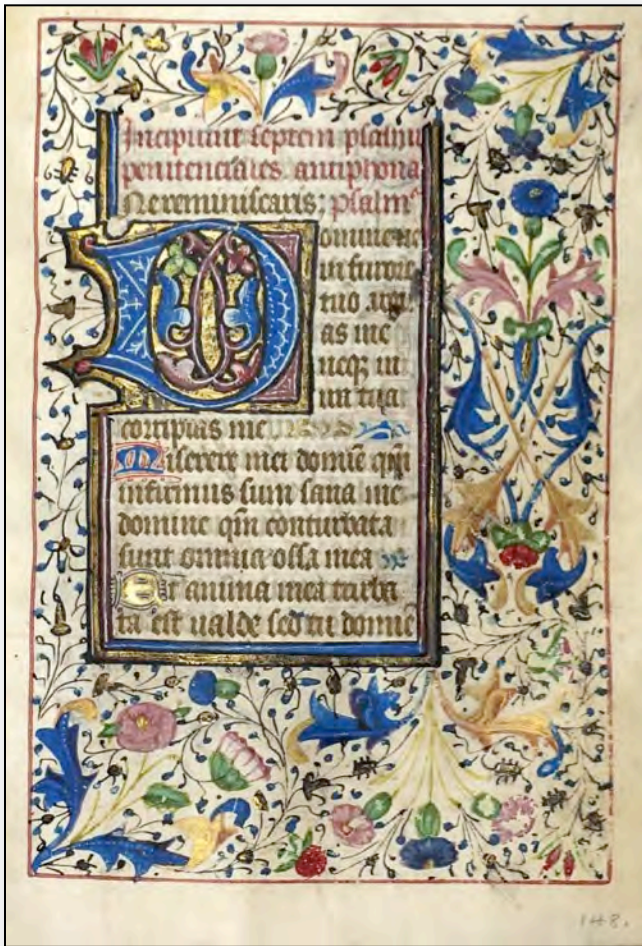 Incipiunt septem psalmi
penitenciales antiphona
Ne reminiscaris : psalmꝰ
Domine ne
in furore
tuo argu
as me
neqꝫ in
ira tua
corripias me
Miserere mei domīe qm̄
infirmus sum sana me
domine qm̄ conturbata
sunt omnia ossa mea
Et anima mea turba
ta est ualde sed tu domīe
148.